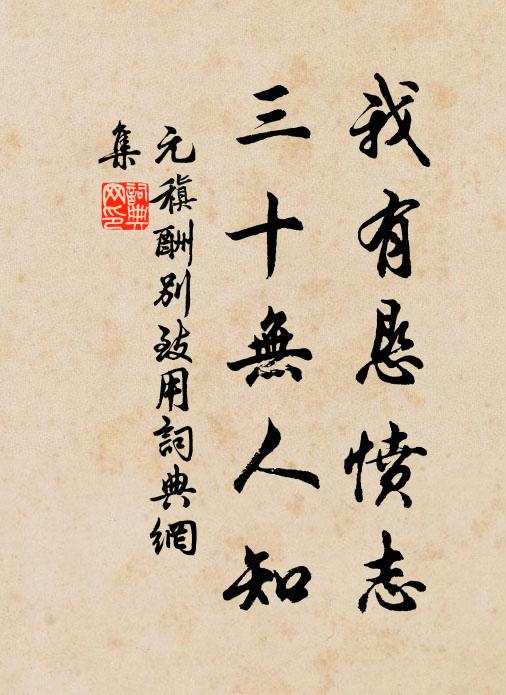 我有恳愤志
三十無人知
元稹酬别致用詞典網
集
詞典網印